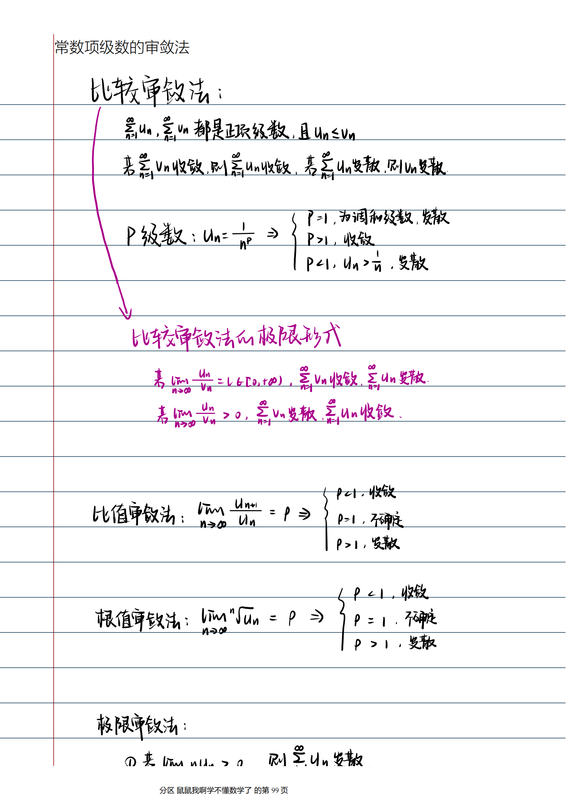 常数项级数的审敛法
比较审敛法:
∑_{n=1}^{∞} u_n, ∑_{n=1}^{∞} v_n 都是正项级数,且 u_n ≤ v_n
若 ∑_{n=1}^{∞} v_n 收敛,则 ∑_{n=1}^{∞} u_n 收敛,若 ∑_{n=1}^{∞} u_n 发散,则 v_n 发散.
P级数: u_n = 1/n^p ⇒ {
P=1,为调和级数,发散
P>1,收敛
P<1, u_n > 1/n,发散
比较审敛法的极限形式
若 lim_{n→∞} u_n/v_n = l ∈ [0,+∞), ∑_{n=1}^{∞} v_n 收敛, ∑_{n=1}^{∞} u_n 发散.
若 lim_{n→∞} u_n/v_n > 0, ∑_{n=1}^{∞} v_n 发散, ∑_{n=1}^{∞} u_n 收敛.
比值审敛法: lim_{n→∞} u_{n+1}/u_n = ρ ⇒ {
ρ<1,收敛
ρ=1,不确定
ρ>1,发散
根值审敛法: lim_{n→∞} ⁿ√u_n = ρ ⇒ {
ρ < 1,收敛
ρ = 1,不确定
ρ > 1,发散
极限审敛法:
① 若 lim n u_n > 0, 则 ∑^{∞} u_n 发散
分区 鼠鼠我啊学不懂数学了 的第 99 页